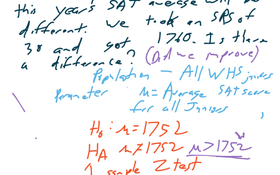 this year's SAT average will be
different. We took an SRS of
38 and got 1760. Is there
a difference? (Did we improve)
Population - All WHS juniors
Parameter μ = Average SAT score
for all Juniors
H₀: μ = 1752
HA μ ≠ 1752 μ > 1752
1 sample Z test